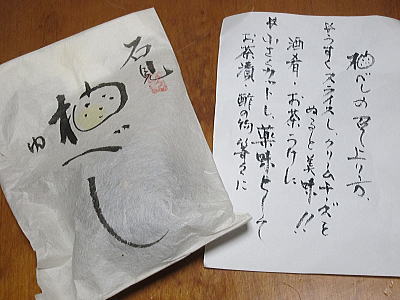 石見
柚べし
ゆ
柚べしの召し上り方、
うすくスライスし、クリームチーズを
ぬると美味!!
酒肴・お茶うけに
小さくカットし、薬味として
お茶漬・酢の物等々に